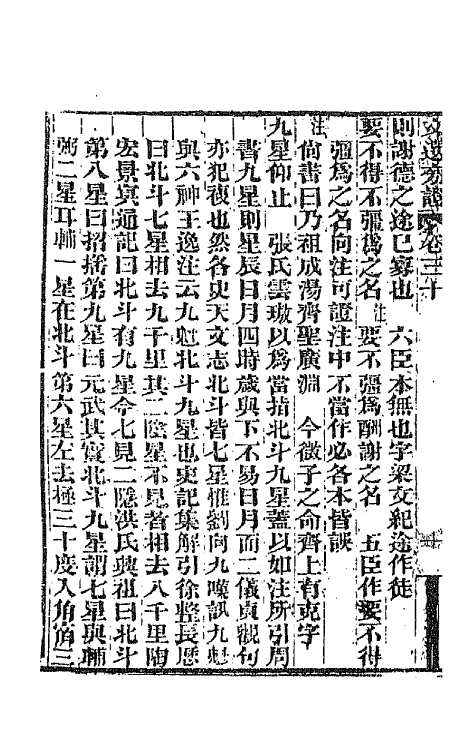 文選旁證 卷三十
則謝德之途已寡也　六臣本無也字梁文紀途作徒
要不得不彊為之名　注要不彊為酬謝之名　五臣作要不得
彊為之名向注可證注中不當作必各本皆誤
注尚書曰乃祖成湯齊聖廣淵　今微子之命齊上有克字
九星仰止　張氏雲璈以為當指北斗九星蓋以如注所引周
書九星則星辰日月四時歲與下不易日月而二儀貞觀句
亦犯複也然各史天文志北斗皆七星惟劉向九歎訊九魁
與六神王逸注云九魁北斗九星也史記集解引徐整長歷
曰北斗七星相去九千里其二陰星不見者相去八千里陶
宏景冥通記曰北斗有九星今七見二隱洪氏興祖曰北斗
第八星曰招搖第九星曰元武其實北斗九星謂七星與輔
弼二星耳輔一星在北斗第六星左去極三十度入角宿三